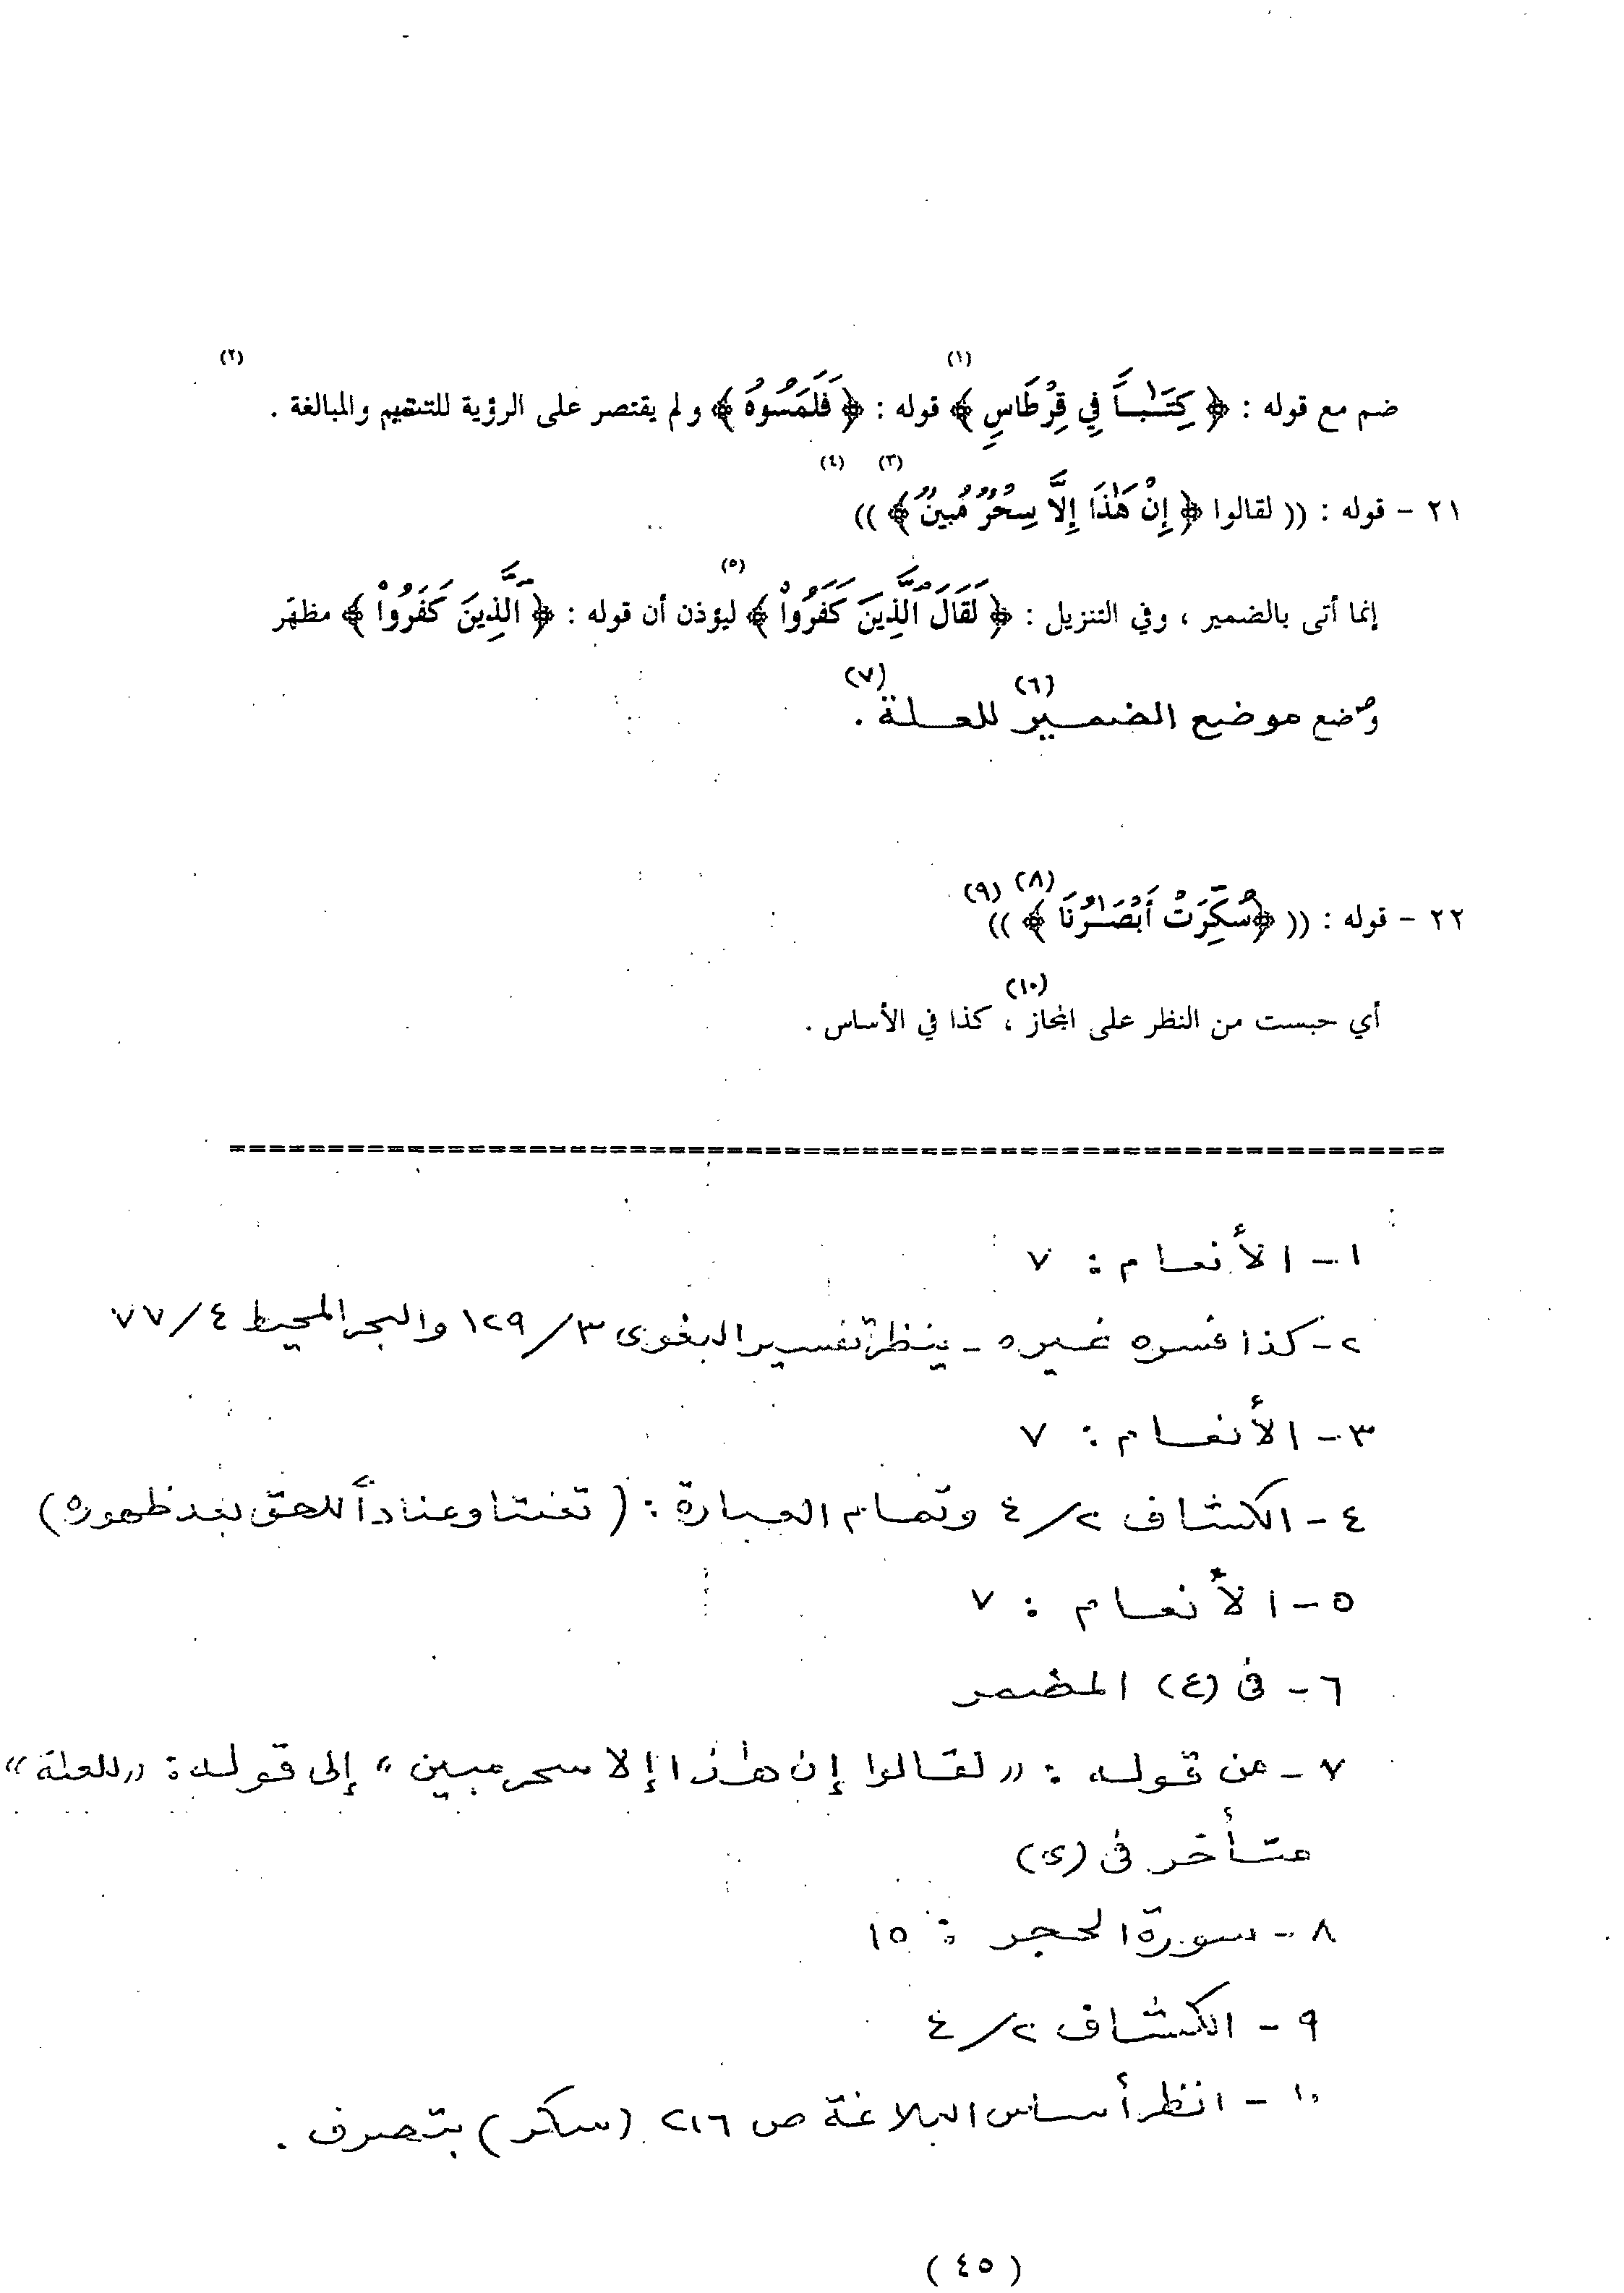 (١) (٢)
ضم مع قوله : ﴿ كِتَـٰبـاً فِي قِرْطَاسٍ ﴾ قوله : ﴿ فَلَمَسُوهُ ﴾ ولم يقتصر على الرؤية للتتميم والمبالغة .
(٣) (٤)
٢١ - قوله : (( لقالوا ﴿ إِنْ هَـٰذَا إِلَّا سِحْرٌ مُّبِينٌ ﴾ ))
(٥)
إنما أتى بالضمير ، وفي التنزيل : ﴿ لَقَالَ الَّذِينَ كَفَرُواْ ﴾ ليؤذن أن قوله : ﴿ الَّذِينَ كَفَرُواْ ﴾ مظهَر
(٦) (٧)
وُضع موضع الضمير للعلة .
(٨) (٩)
٢٢ - قوله : (( ﴿سُكِّرَتْ أَبْصَـٰرُنَا ﴾ ))
(١٠)
أي حبست من النظر على المجاز ، كذا في الأساس .
١ - الأنعام : ٧
٢ - كذا فسره غيره - ينظر تفسير البغوى ٣/١٢٩ والبحر المحيط ٤/٧٧
٣ - الأنعام : ٧
٤ - الكشاف ٢/٤ وتمام العبارة : ( تعنتا وعناداً للحق بعد ظهوره )
٥ - الأنعام : ٧
٦ - فى (ع) المضمر
٧ - من قوله : « لقالوا إن هٰذا إلا سحر مبين » إلى قوله : « للعلة »
متأخر فى (ى)
٨ - سورة الحجر : ١٥
٩ - الكشاف ٢/٤
١٠ - انظر أساس البلاغة ص ٢١٦ (سكر) بتصرف .
( ٤٥ )